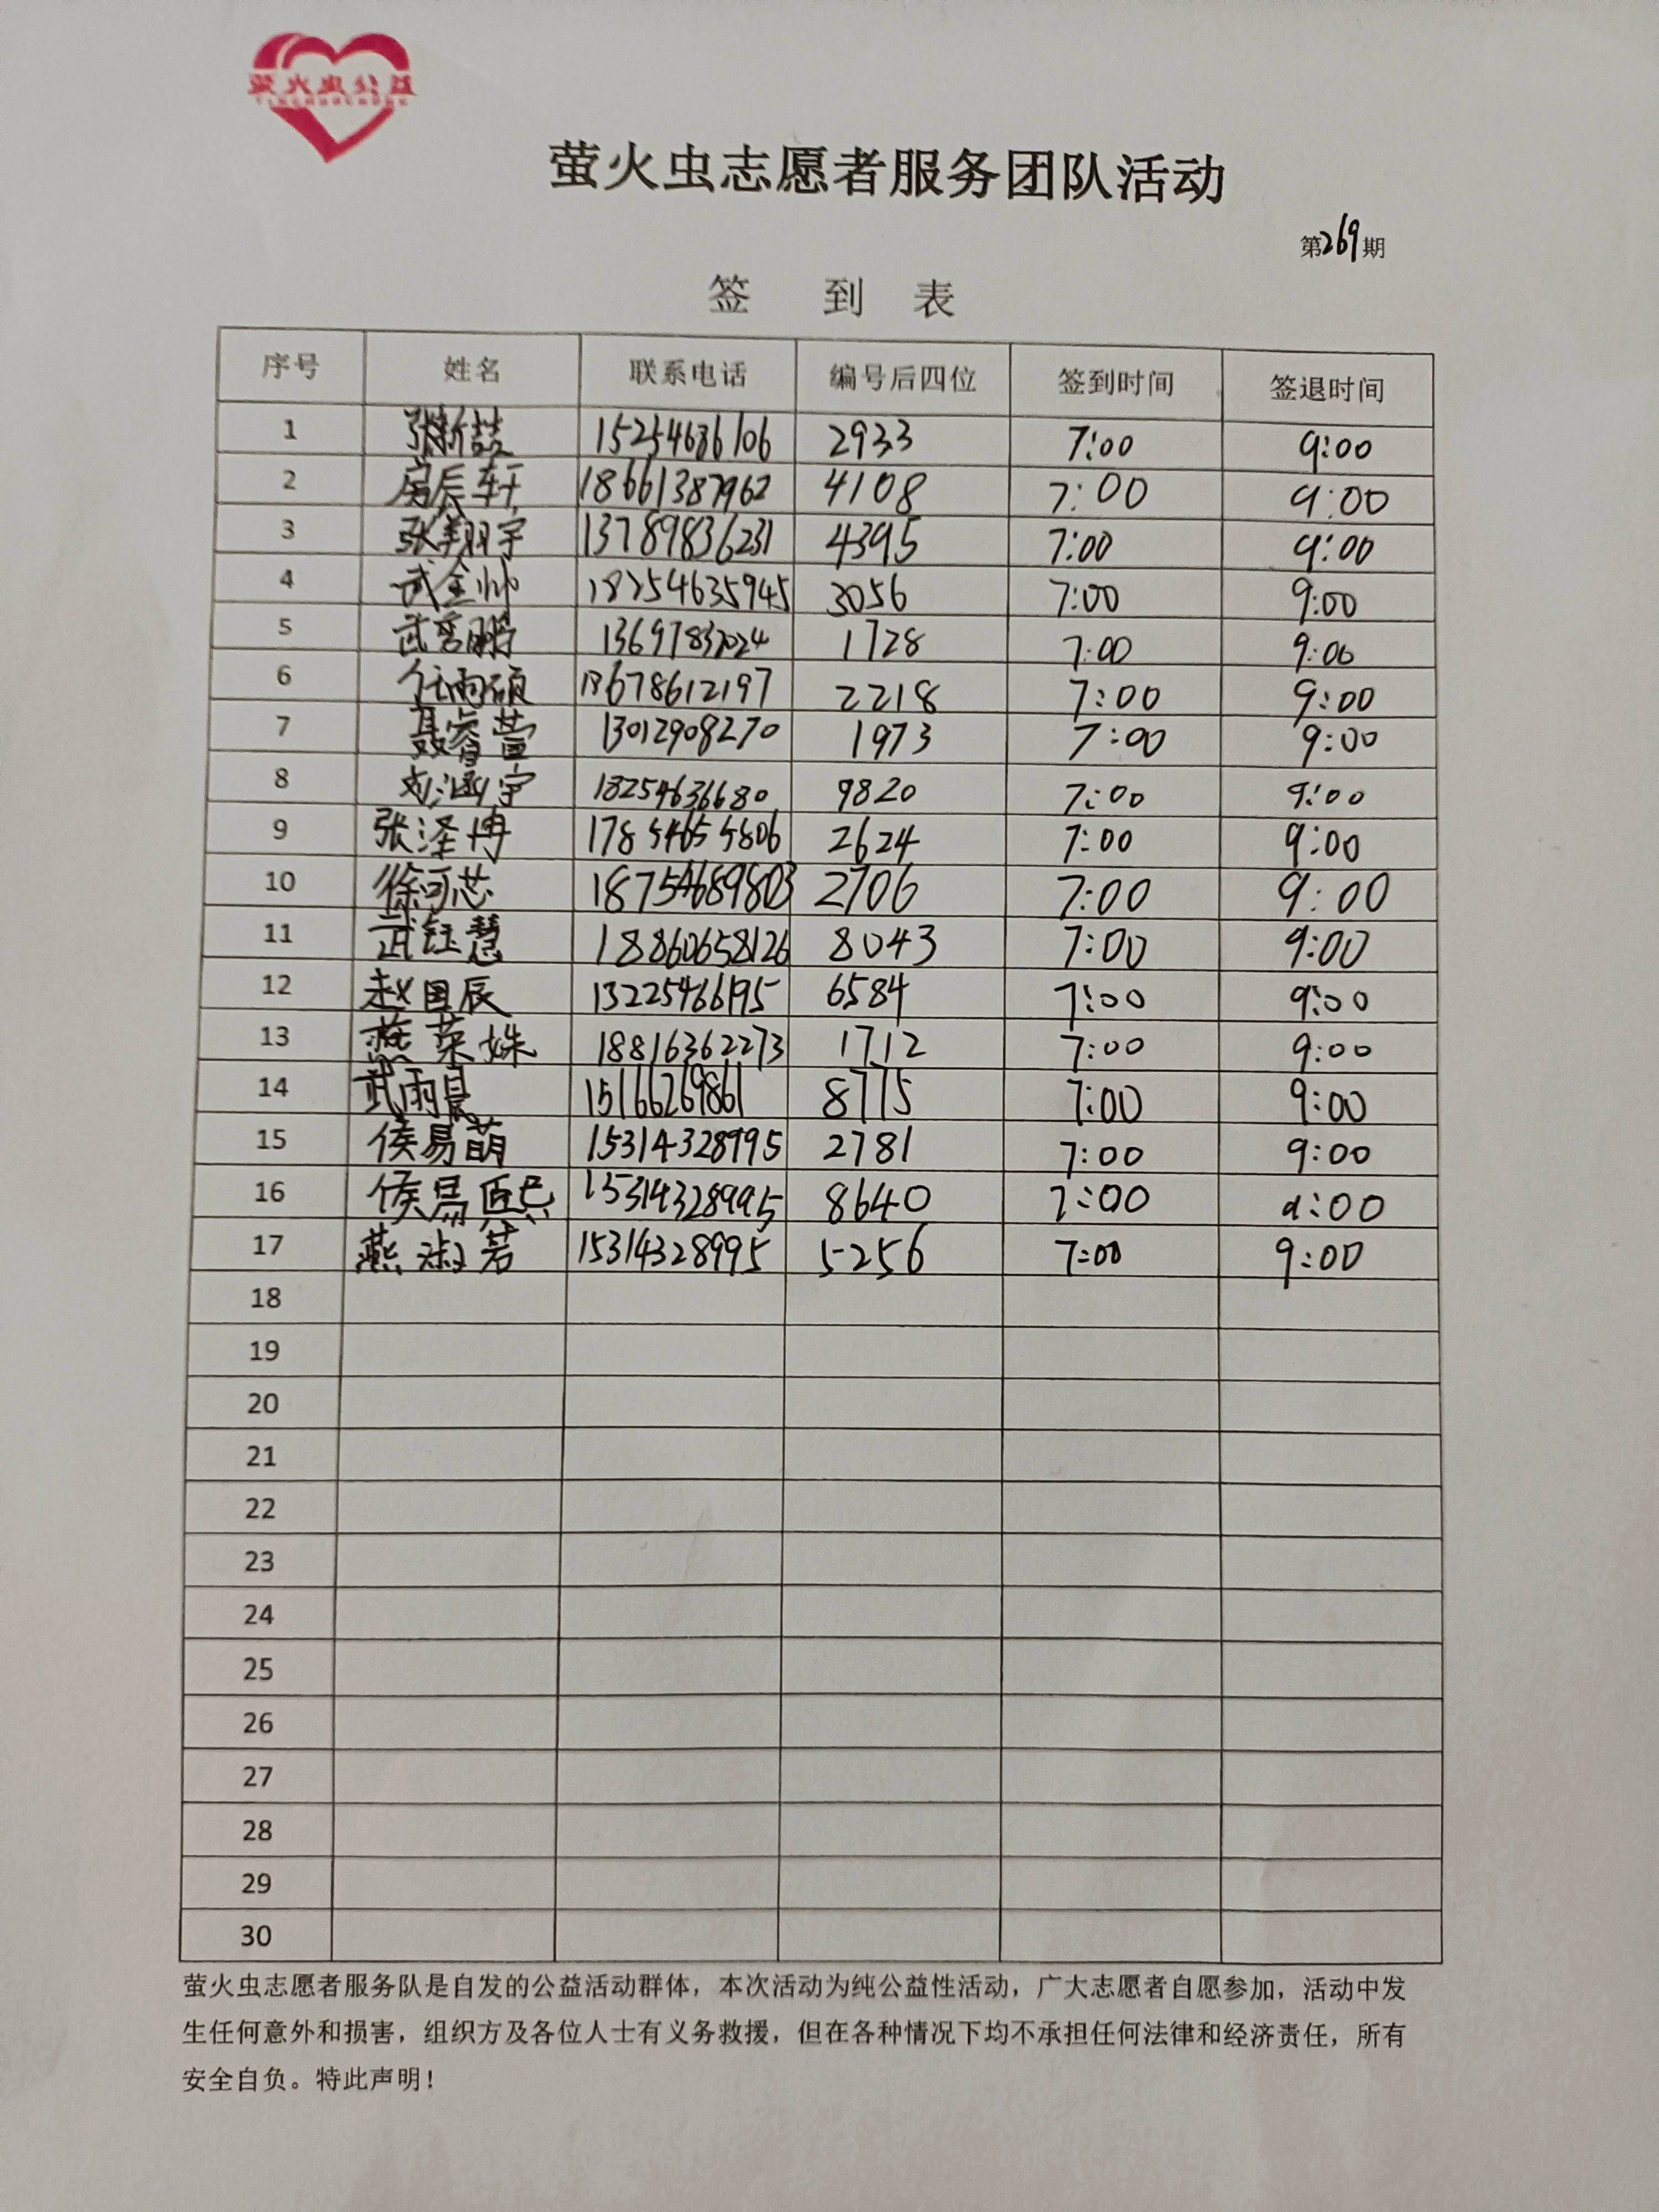 萤火虫公益
YINGHUOCHONG
萤火虫志愿者服务团队活动
第269期
签 到 表
序号 姓名 联系电话 编号后四位 签到时间 签退时间
1 张新喆 15254686106 2933 7:00 9:00
2 房辰轩 18661387962 4108 7:00 9:00
3 张翔宇 13789836231 4395 7:00 9:00
4 武金帅 18254635945 3056 7:00 9:00
5 武 鹏 13697837024 1728 7:00 9:00
6 任雨硕 13678612197 2218 7:00 9:00
7 聂睿萱 13012908270 1973 7:00 9:00
8 刘涵宇 18254636680 9820 7:00 9:00
9 张泽冉 17854654806 2624 7:00 9:00
10 徐可芯 18754689803 2706 7:00 9:00
11 武钰慧 18860658126 8043 7:00 9:00
12 赵国辰 13225466195 6584 7:00 9:00
13 燕荣姝 18816362273 1712 7:00 9:00
14 武雨晨 15166269861 8775 7:00 9:00
15 侯易萌 15314328995 2781 7:00 9:00
16 侯易 15314328995 8640 7:00 9:00
17 燕淑芳 15314328995 5256 7:00 9:00
18
19
20
21
22
23
24
25
26
27
28
29
30
萤火虫志愿者服务队是自发的公益活动群体，本次活动为纯公益性活动，广大志愿者自愿参加，活动中发
生任何意外和损害，组织方及各位人士有义务救援，但在各种情况下均不承担任何法律和经济责任，所有
安全自负。特此声明！